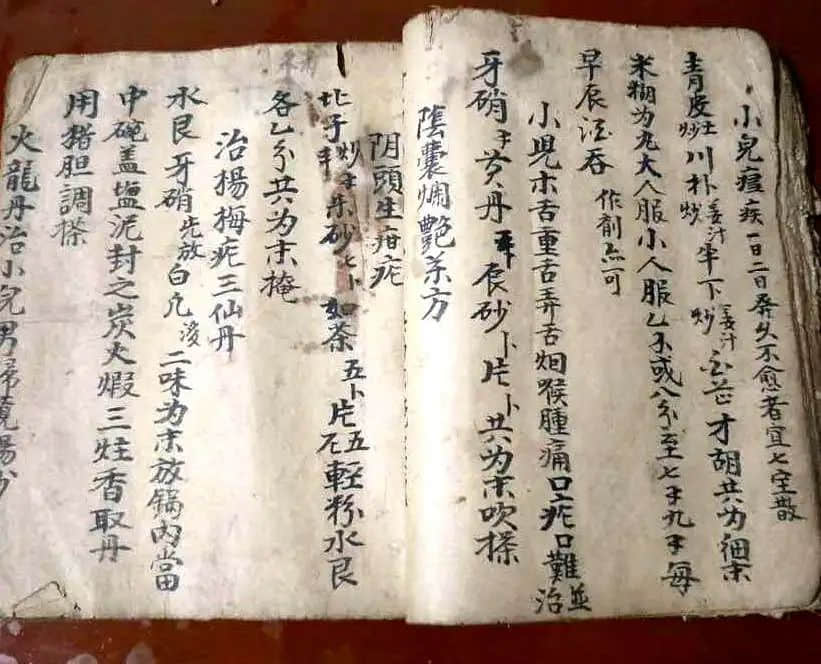 小兒瘧疾一日二日發久不愈者宜七宝散
青皮土炒川朴姜汁炒半下姜汁炒白芒才胡共为細末
米糊为丸大人服小人服乙分或八分至七分九分每
早辰酒吞 作劑亦可
小児木舌重舌弄舌咽喉腫痛口疮口難並治
牙硝 黄丹 辰砂卜片卜共为末吹搽
陰囊爛艷茶方
阴頭生疳疕
朱砂七卜 如茶五卜片五輕粉水艮
各乙分共为末掩
治揚梅疕三仙丹
水艮牙硝先放白凡後二味为末放锅内當
中碗盖塩泥封之炭火煆三炷香取丹
用猪胆調搽
火龍丹治小兒男婦